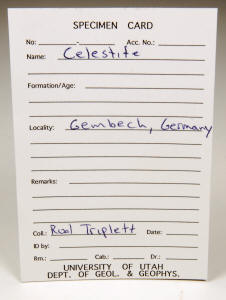 SPECIMEN CARD
No: - Acc. No.:
Name: Celestite
Formation/Age:
Locality: Gembech, Germany
Remarks:
Coll.: Rod Triplett Date:
ID by:
Rm.: Cab.: Dr.:
UNIVERSITY OF UTAH
DEPT. OF GEOL. & GEOPHYS.